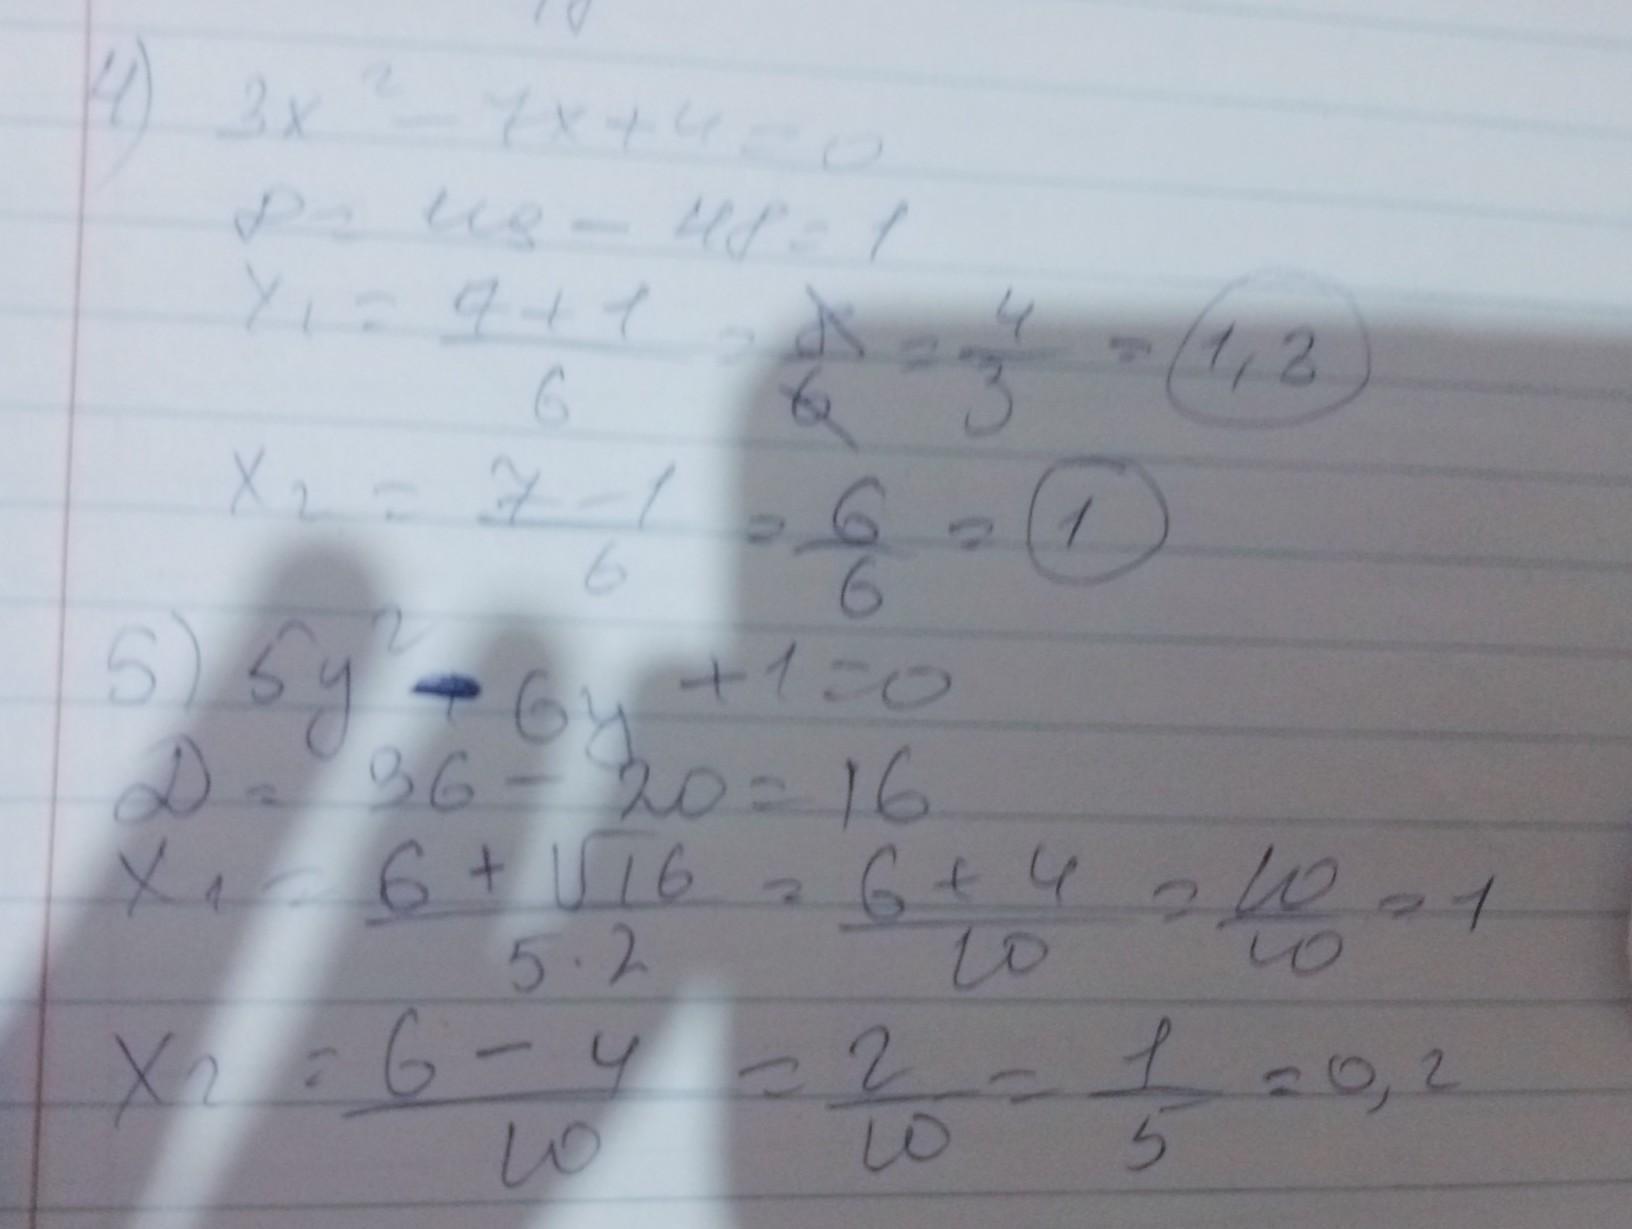 4) 3x² - 7x + 4 = 0
D = 49 - 48 = 1
x₁ = (7 + 1)/6 = 8/6 = 4/3 = 1,3
x₂ = (7 - 1)/6 = 6/6 = 1
5) 5y² - 6y + 1 = 0
D = 36 - 20 = 16
x₁ = (6 + √16)/(5·2) = (6 + 4)/10 = 10/10 = 1
x₂ = (6 - 4)/10 = 2/10 = 1/5 = 0,2